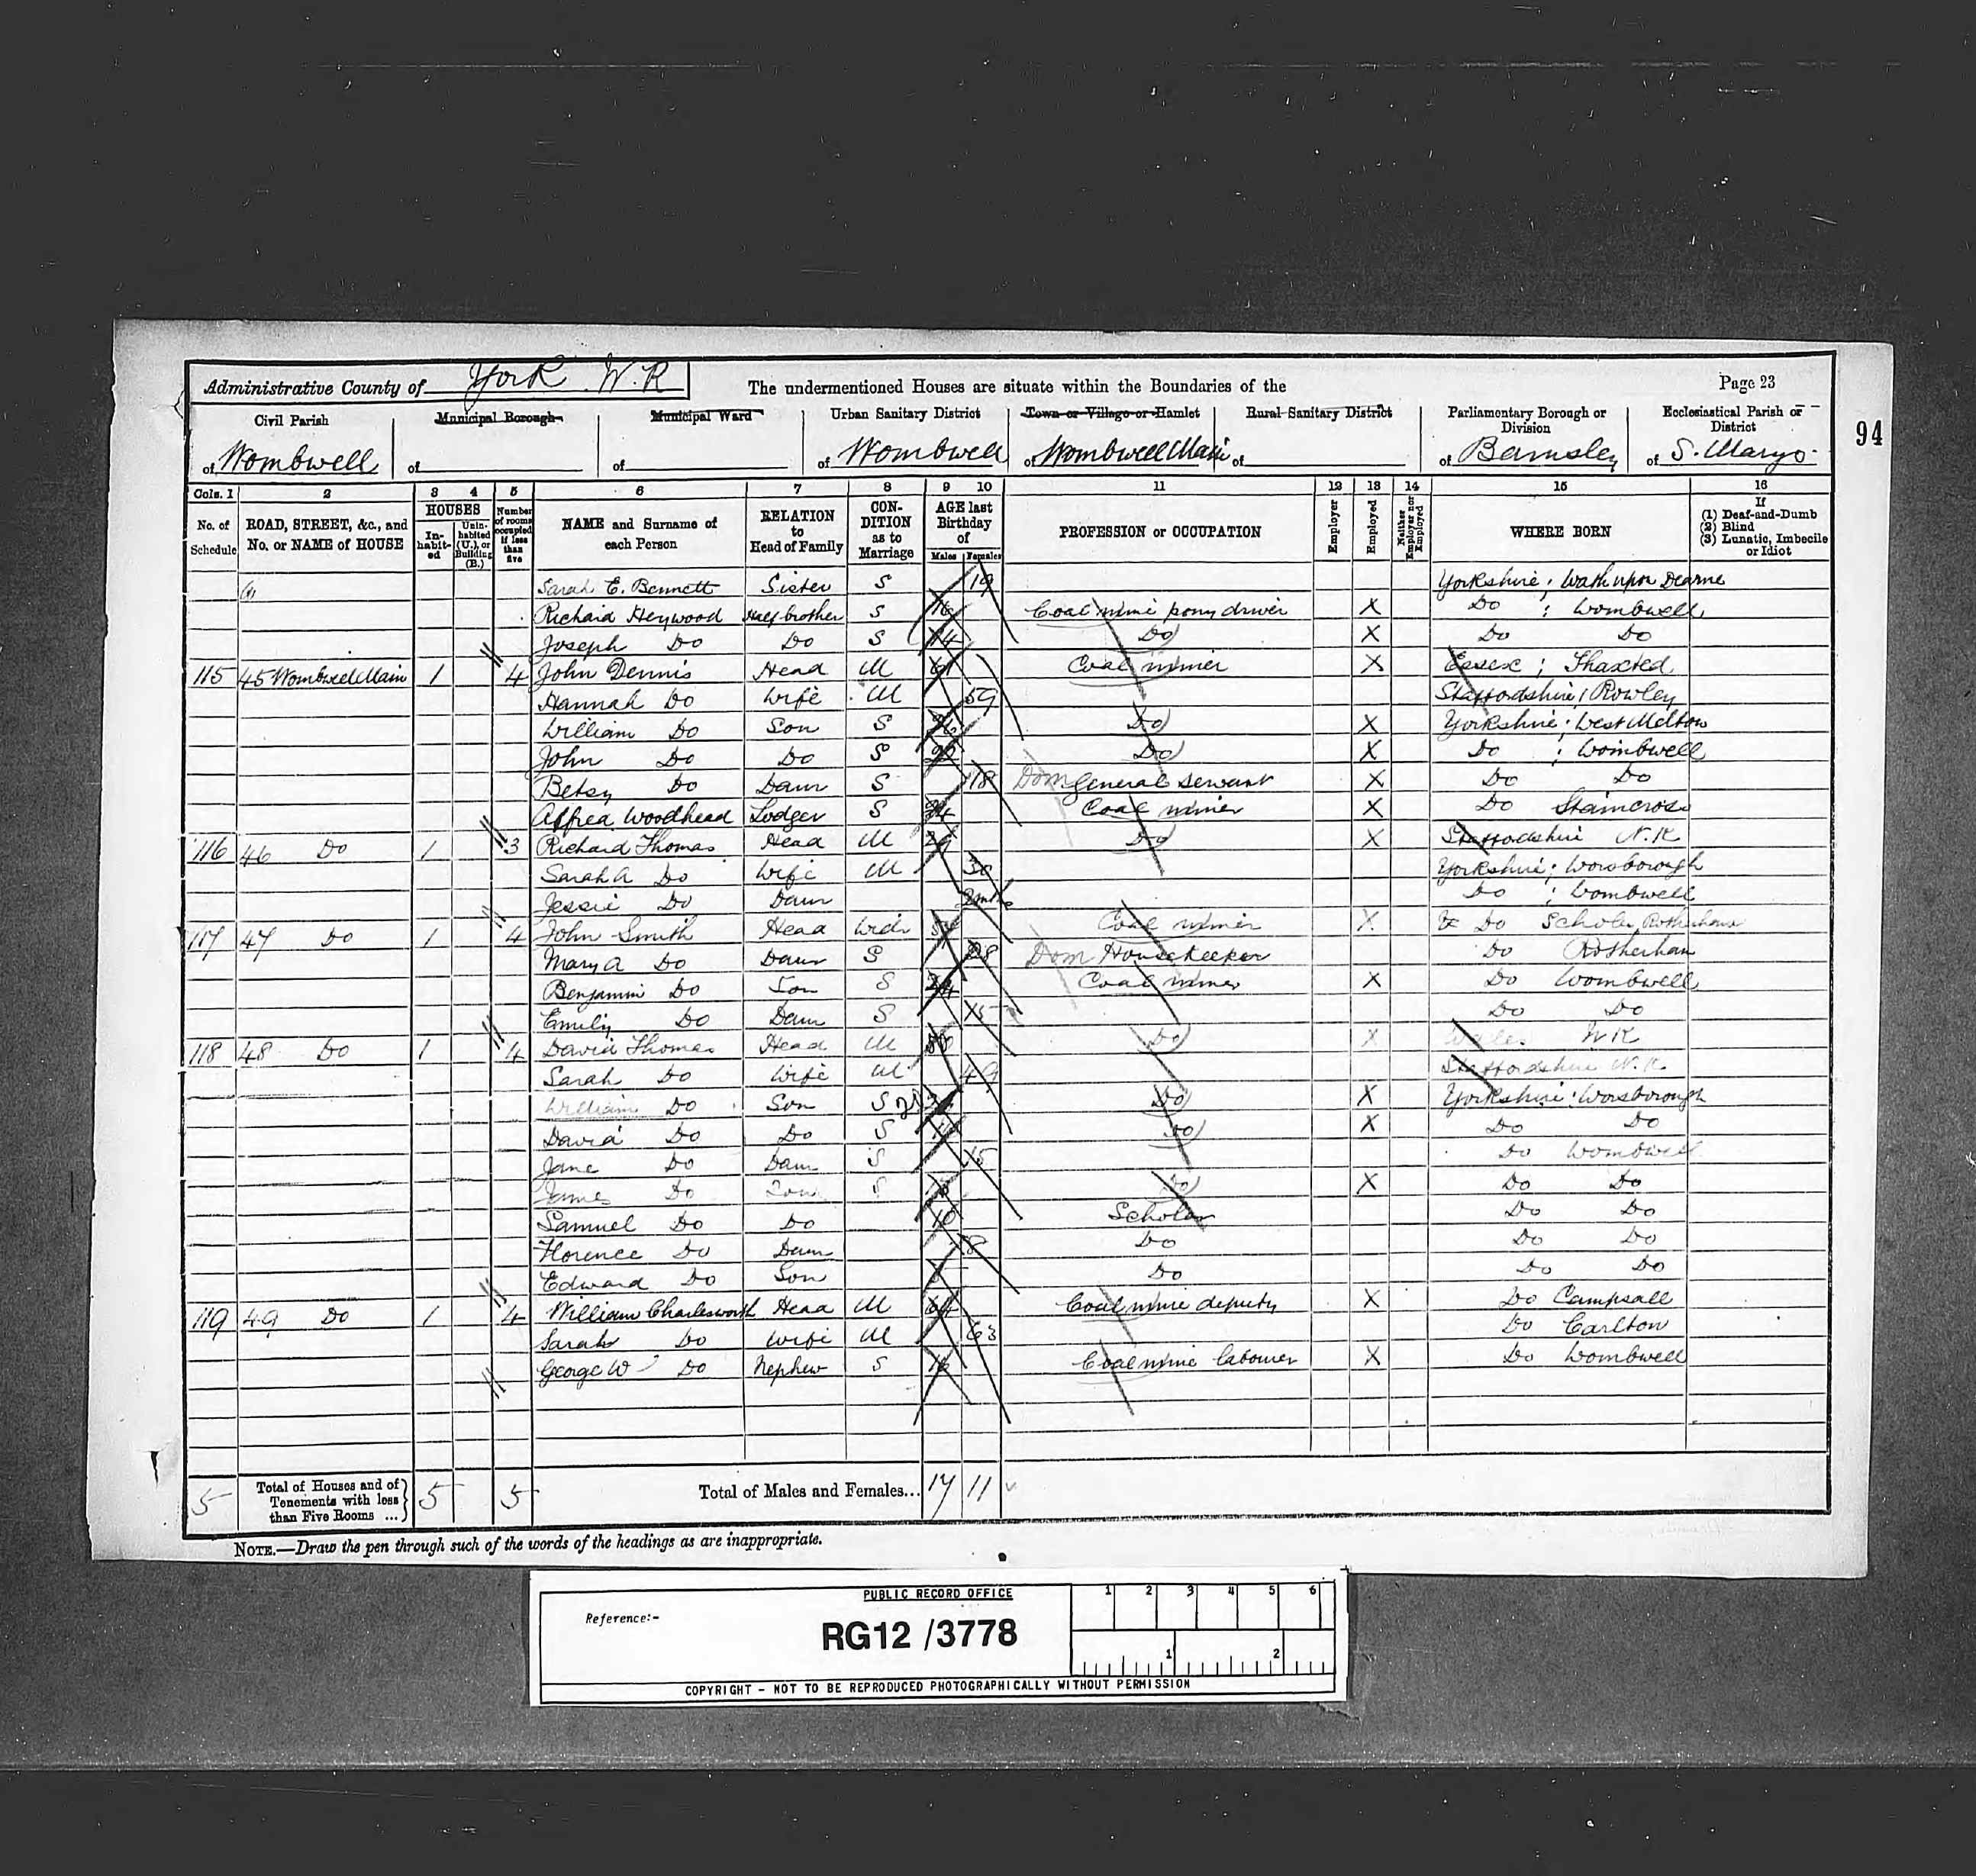 Administrative County of York W.R The undermentioned Houses are situate within the Boundaries of the Page 23
Civil Parish Municipal Borough Municipal Ward Urban Sanitary District Town or Village or Hamlet Rural Sanitary District Parliamentary Borough or Division Ecclesiastical Parish or District
of Wombwell of of of Wombwell of Wombwell Main of of Barnsley of S. Marys
94
Cols. 1 2 3 4 5 6 7 8 9 10 11 12 13 14 15 16
No. of Schedule ROAD, STREET, &c., and No. or NAME of HOUSE HOUSES In-habit-ed Unin-habited (U.), or Building (B.) Number of rooms occupied if less than five NAME and Surname of each Person RELATION to Head of Family CON-DITION as to Marriage AGE last Birthday of Males Females PROFESSION or OCCUPATION Employer Employed Neither Employer nor Employed WHERE BORN If (1) Deaf-and-Dumb (2) Blind (3) Lunatic, Imbecile or Idiot
Sarah E. Bennett Sister S 19 Yorkshire; Wath upon Dearne
Richard Heywood Half brother S 16 Coal mine pony driver X Do ; Wombwell
Joseph Do Do S 14 Do X Do Do
115 45 Wombwell Main 1 4 John Dennis Head M 61 Coal miner X Essex ; Thaxted
Hannah Do Wife M 59 Staffordshire; Rowley
William Do Son S 26 Do X Yorkshire; West Melton
John Do Do S Do X Do ; Wombwell
Betsy Do Daur S 18 Dom General servant X Do Do
Alfred Woodhead Lodger S 24 Coal miner X Do Staincross
116 46 Do 1 3 Richard Thomas Head M 29 Do X Staffordshire N.K
Sarah A Do Wife M 30 Yorkshire; Worsborough
Jessie Do Daur mths Do ; Wombwell
117 47 Do 1 4 John Smith Head Widr Coal miner X Do Scholes, Rotherham
Mary A Do Daur S 28 Dom Housekeeper Do Rotherham
Benjamin Do Son S 24 Coal miner X Do Wombwell
Emily Do Daur S 15 Do Do
118 48 Do 1 4 David Thomas Head M 50 Do X Wales N.K
Sarah Do Wife M 49 Staffordshire N.K.
William Do Son S 21 Do X Yorkshire; Worsborough
David Do Do S Do X Do Do
Jane Do Daur S 15 Do Wombwell
James Do Son S 13 Do X Do Do
Samuel Do Do 10 Scholar Do Do
Florence Do Daur 8 Do Do Do
Edward Do Son Do Do Do
119 49 Do 1 4 William Charlesworth Head M 64 Coal mine deputy X Do Campsall
Sarah Do Wife M 63 Do Carlton
George W Do Nephew S 16 Coal mine labourer X Do Wombwell
5 Total of Houses and of Tenements with less than Five Rooms ... 5 5 Total of Males and Females... 17 11
NOTE.—Draw the pen through such of the words of the headings as are inappropriate.
PUBLIC RECORD OFFICE 1 2 3 4 5 6
Reference:-
RG12 /3778 1 2
COPYRIGHT - NOT TO BE REPRODUCED PHOTOGRAPHICALLY WITHOUT PERMISSION